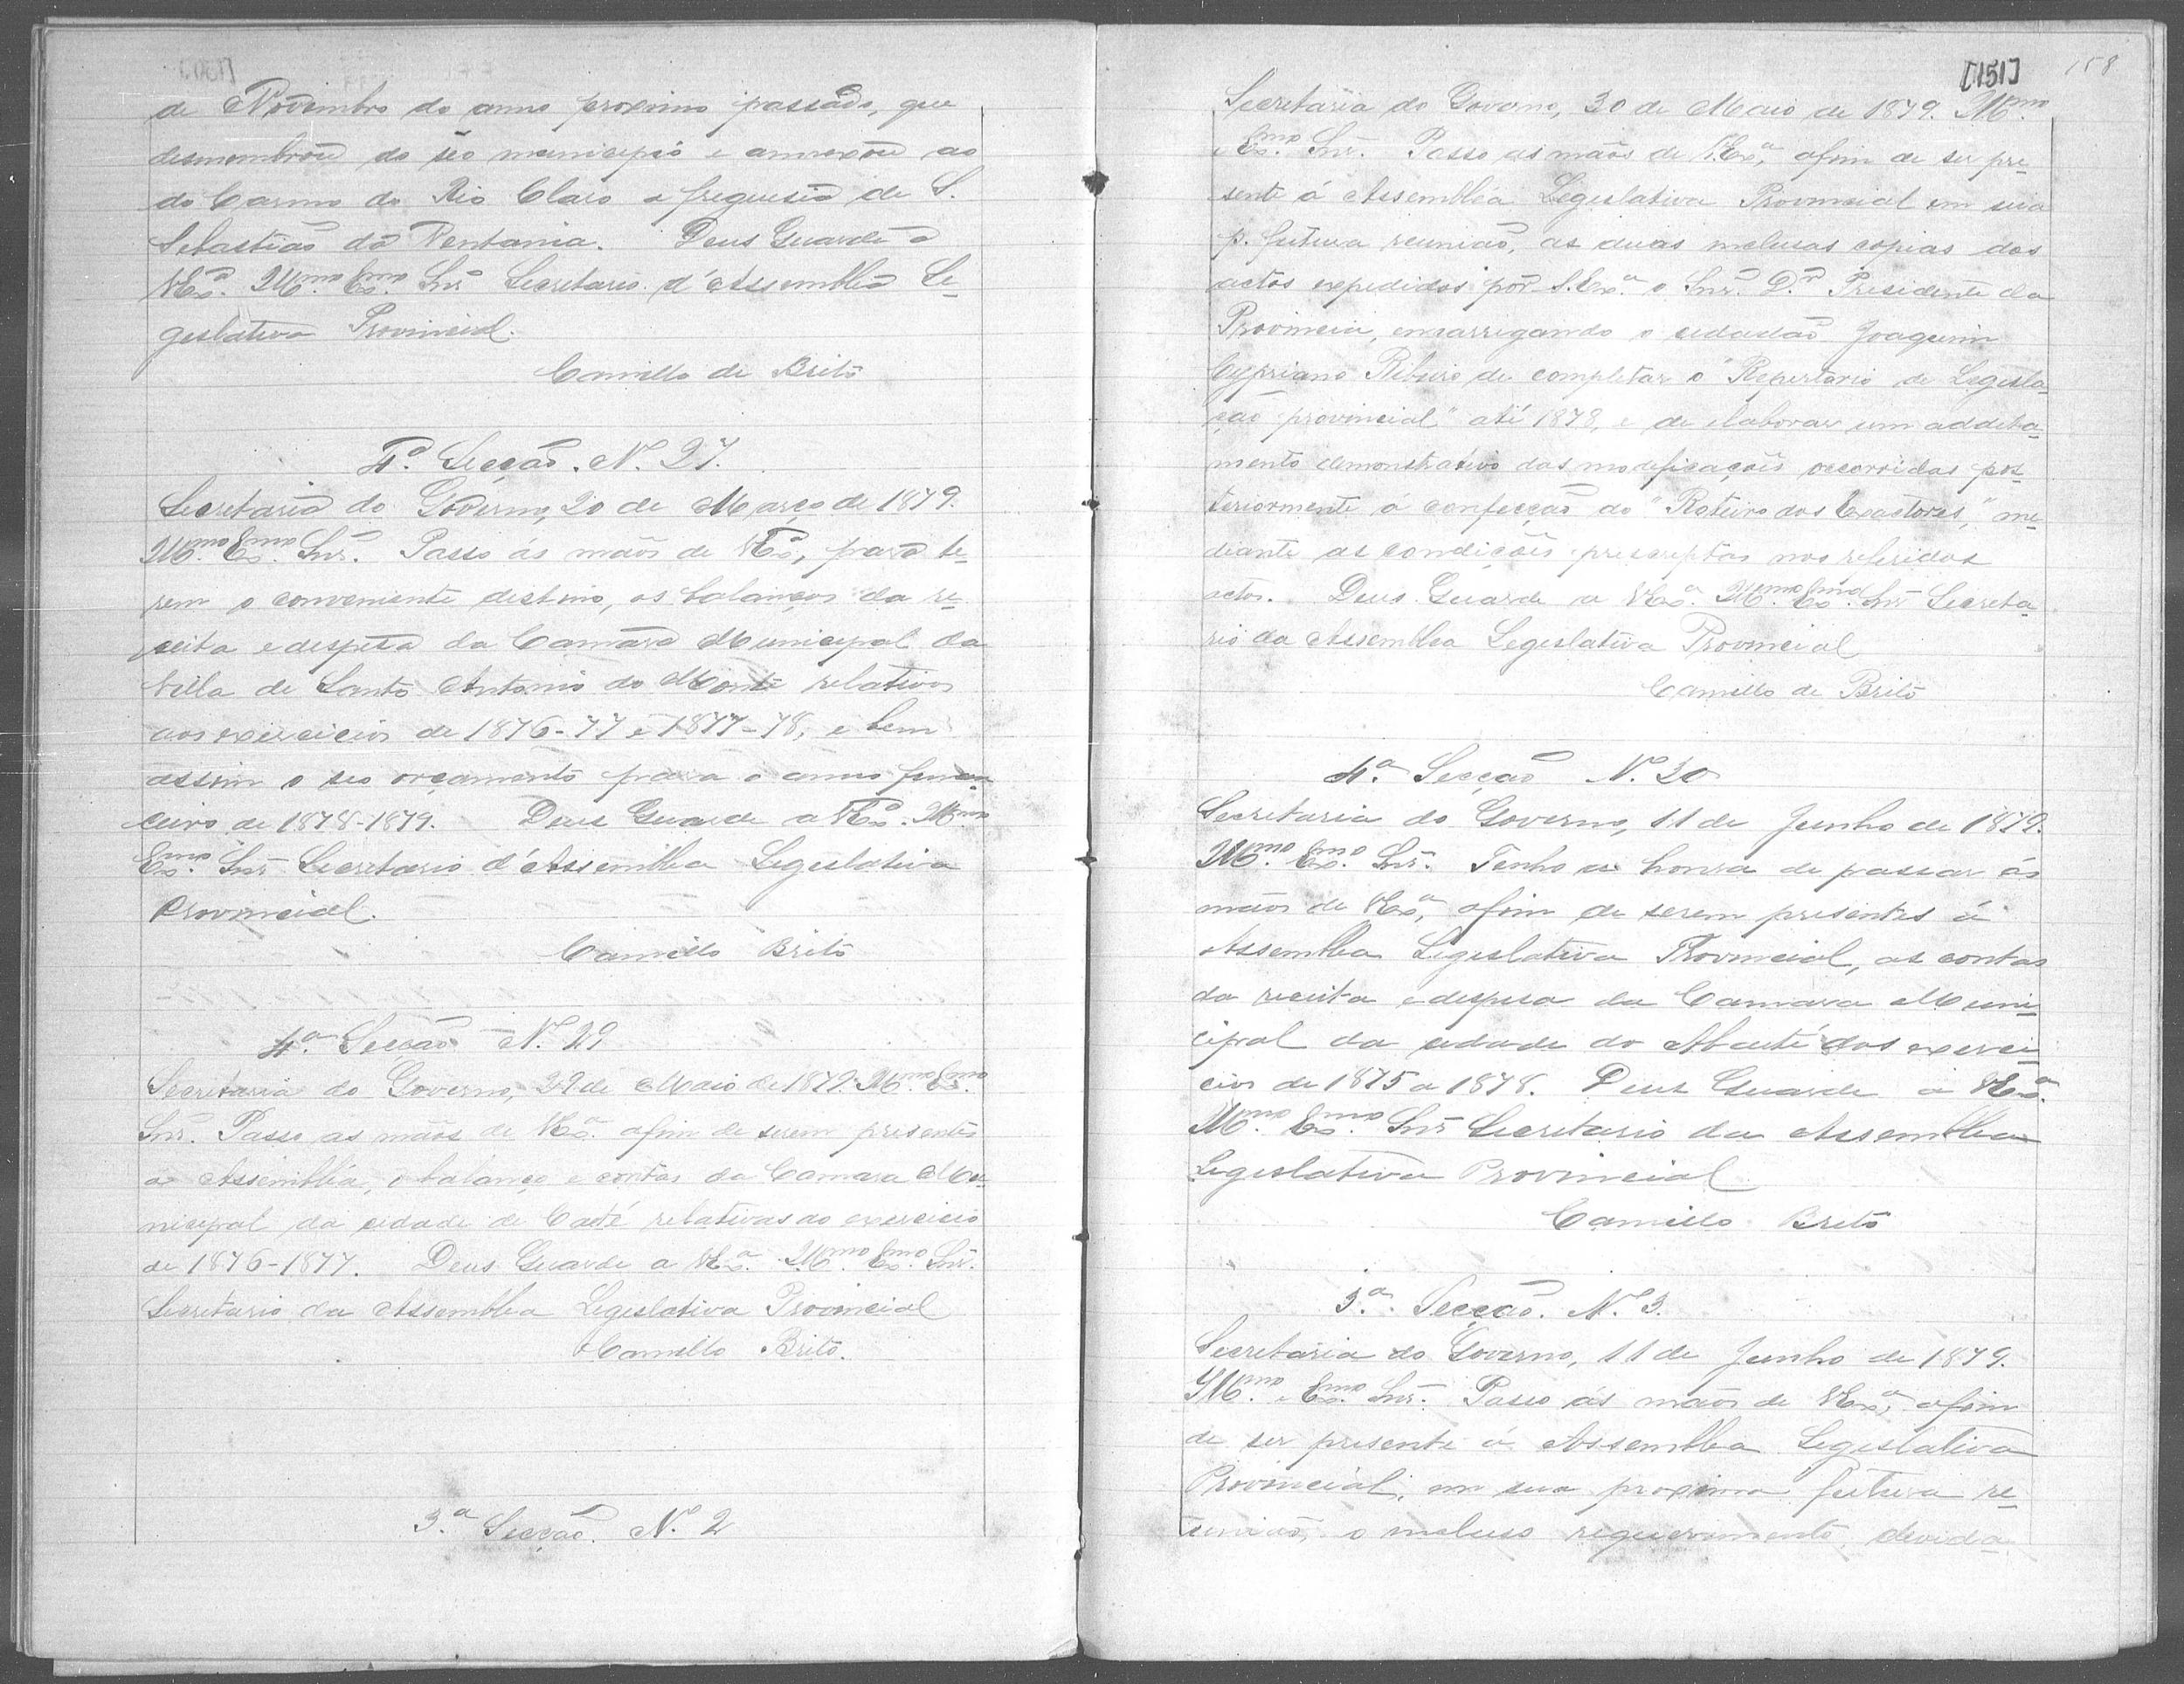 de Novembro do anno proximo passado, que
desmembrou do seo municipio e annexou ao
do Carmo do Rio Claro a freguesia de S.
Sebastião da Ventania. Deus Guarde a
V.Exª. Illmo. Exmo. Snr Secretario d'Assembléa Le-
gislativa Provincial.
Camillo de Brito
4ª. Secção. Nº. 27.
Secretaria do Governo, 20 de Março de 1879.
Illmo. Exmo. Snr. Passo ás mãos de V.Exª, para te-
rem o conveniente destino, os balanços da re-
ceita e despesa da Camara Municipal da
Villa de Santo Antonio do Monte relativos
aos exercicios de 1876-77 e 1877-78, e bem
assim o seo orçamento para o anno finan-
ceiro de 1878-1879. Deus Guarde a V.Exª. Illmo
Exmo. Snr Secretario d'Assembléa Legislativa
Provincial.
Camillo Brito
4ª. Secção Nº. 29
Secretaria do Governo, 29 de Maio de 1879. Illmo. Exmo.
Snr. Passo as mãos de V.Exª. afim de serem presentes
a Assembléa, o balanço e contas da Camara Mu-
nicipal da cidade de Caeté relativas ao exercicio
de 1876-1877. Deus Guarde a V.Exª. Illmo. Exmo. Snr.
Secretario da Assembléa Legislativa Provincial
Camillo Brito.
3.ª Secção. Nº. 2
[151] 158
Secretaria do Governo, 30 de Maio de 1879. Illmo.
e Exmo. Snr. Passo as mãos de V.Exª, afim de ser pre-
sente á Assembléa Legislativa Provincial em sua
p. futura reunião, as duas inclusas copias dos
actos expedidos por S.Exª. o Snr. Dr. Presidente da
Provincia, encarregando o cidadão Joaquim
Cypriano Ribeiro de completar o "Repertorio de Legisla-
ção provincial" até 1878, e de elaborar um addita-
mento demonstrativo das modificações occorridas pos-
teriormente á confecção do "Roteiro dos Exactores," me-
diante as condições prescriptas nos referidos
actos. Deus Guarde a V.Exª. Illmo. Exmo. Snr Secreta-
rio da Assembléa Legislativa Provincial
Camillo de Brito
4ª. Secção Nº. 30
Secretaria do Governo, 11 de Junho de 1879.
Illmo. Exmo. Snr. Tenho a honra de passar ás
mãos de V.Exª, afim de serem presentes á
Assembléa Legislativa Provincial, as contas
da receita e despesa da Camara Muni-
cipal da cidade do Abaeté dos exerci-
cios de 1875 a 1878. Deus Guarde a V.Exª.
Illmo. Exmo. Snr Secretario da Assembléa
Legislativa Provincial
Camillo Brito
3.ª. Secção. Nº. 3.
Secretaria do Governo, 11 de Junho de 1879.
Illmo. e Exmo. Snr. Passo ás mãos de V.Exª, afim
de ser presente á Assembléa Legislativa
Provincial, em sua proxima futura re-
união, o incluso requerimento, devida-